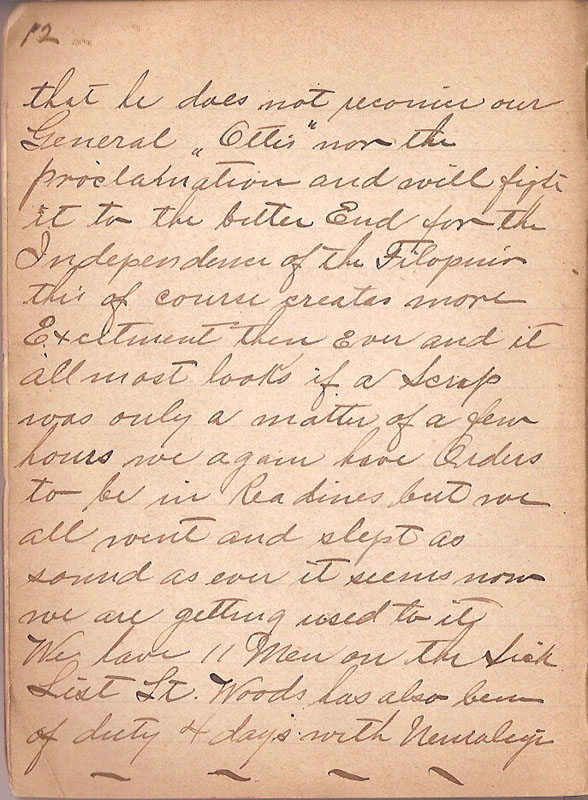 12
that he does not reconice our
General „Ottis" nor the
proclahnation and will fight
it to the bitter End for the
Independence of the Filopino
this of course creates more
Excitment then Ever and it
allmost looks if a Scrap
was only a matter of a few
hours we again have Orders
to be in Readines but we
all went and slept as
sound as ever it seems now
we are getting used to it
We have 11 Men on the Sick
List Lt. Woods has also been
of duty 4 days with Neuralegi